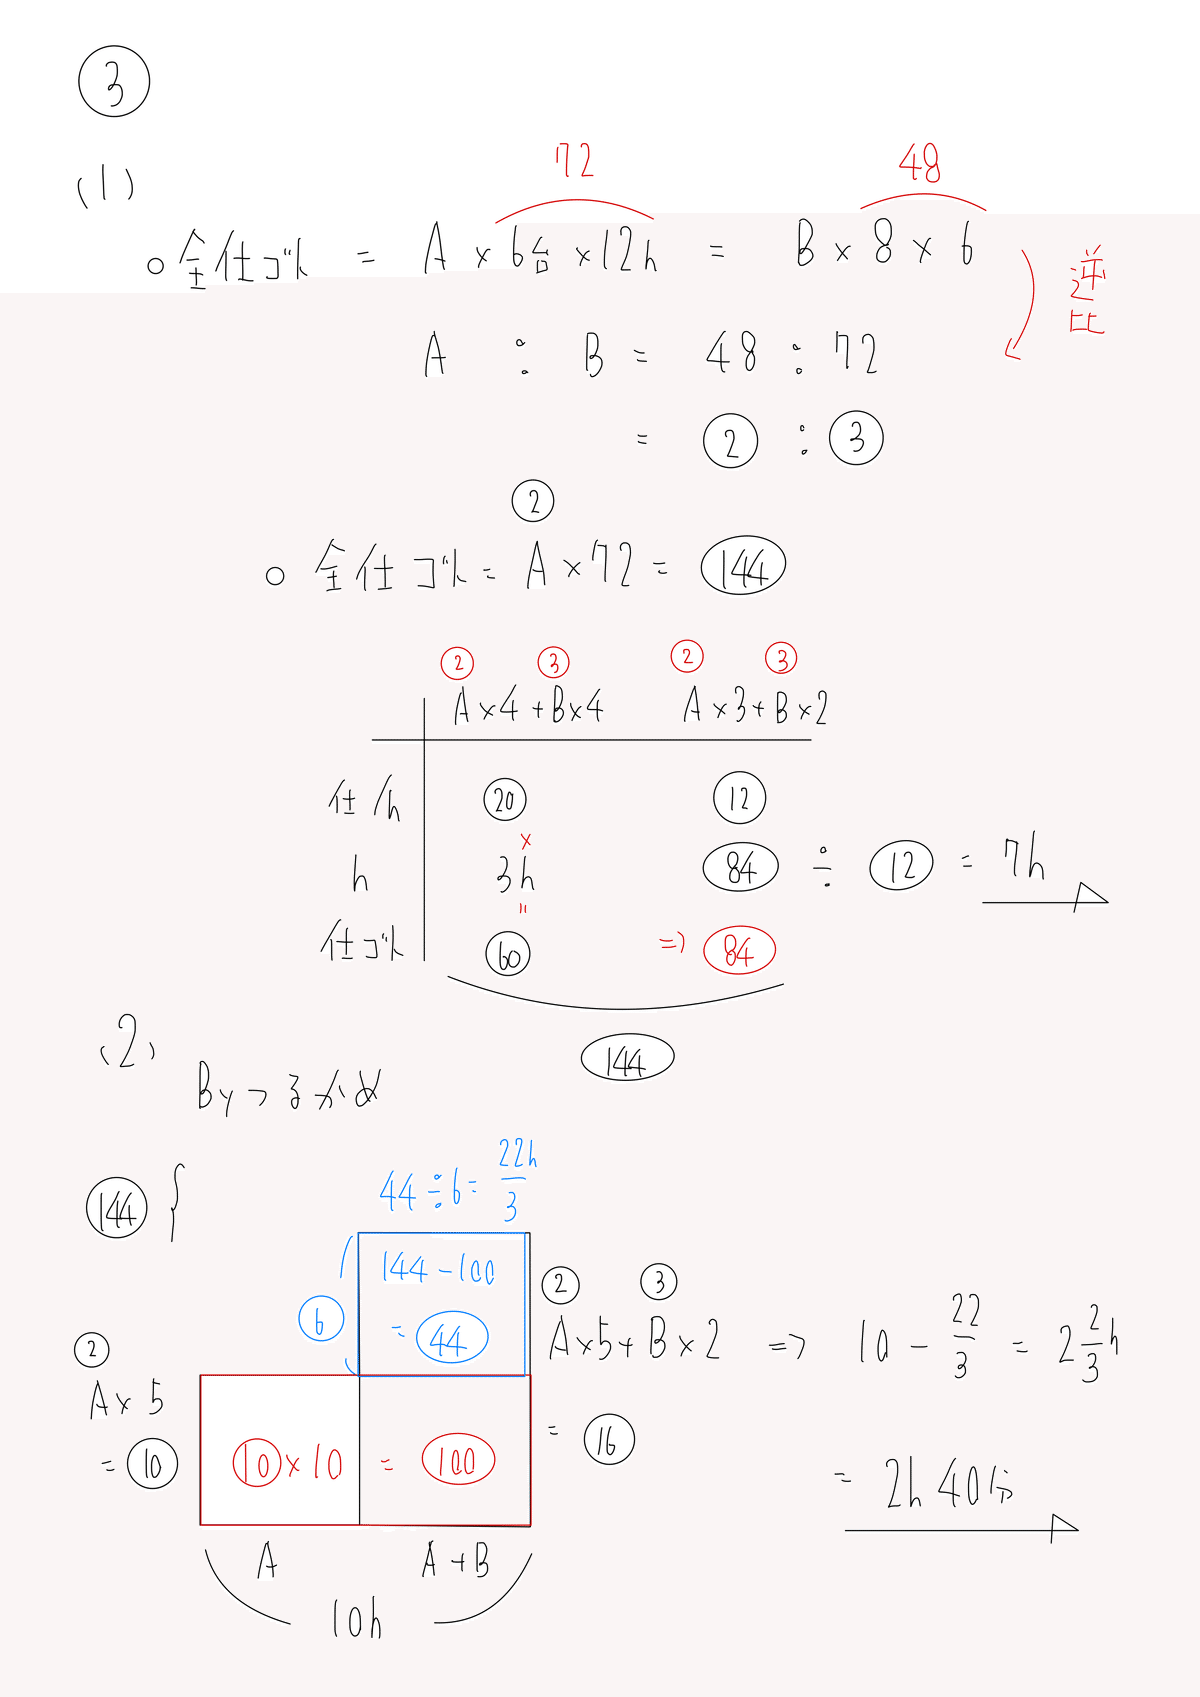 ③
(1)
72 48
○ 全仕ゴト = A × 6台 × 12h = B × 8 × 6
逆比
A : B = 48 : 72
= ② : ③
②
○ 全仕ゴト = A × 72 = (144)
② ③ ② ③
A×4+B×4 A×3+B×2
仕/h ⑳ ⑫
×
h 3h (84) ÷ ⑫ = 7h
"
仕ゴト (60) => (84)
(144)
(2)
(144)
44÷6= 22/3 h
144-100
② ③
⑥ = (44) A×5+B×2 => 10 - 22/3 = 2 2/3 h
②
A×5
= ⑩ ⑩×10 = (100) = ⑯
= 2h 40分
A A+B
10h